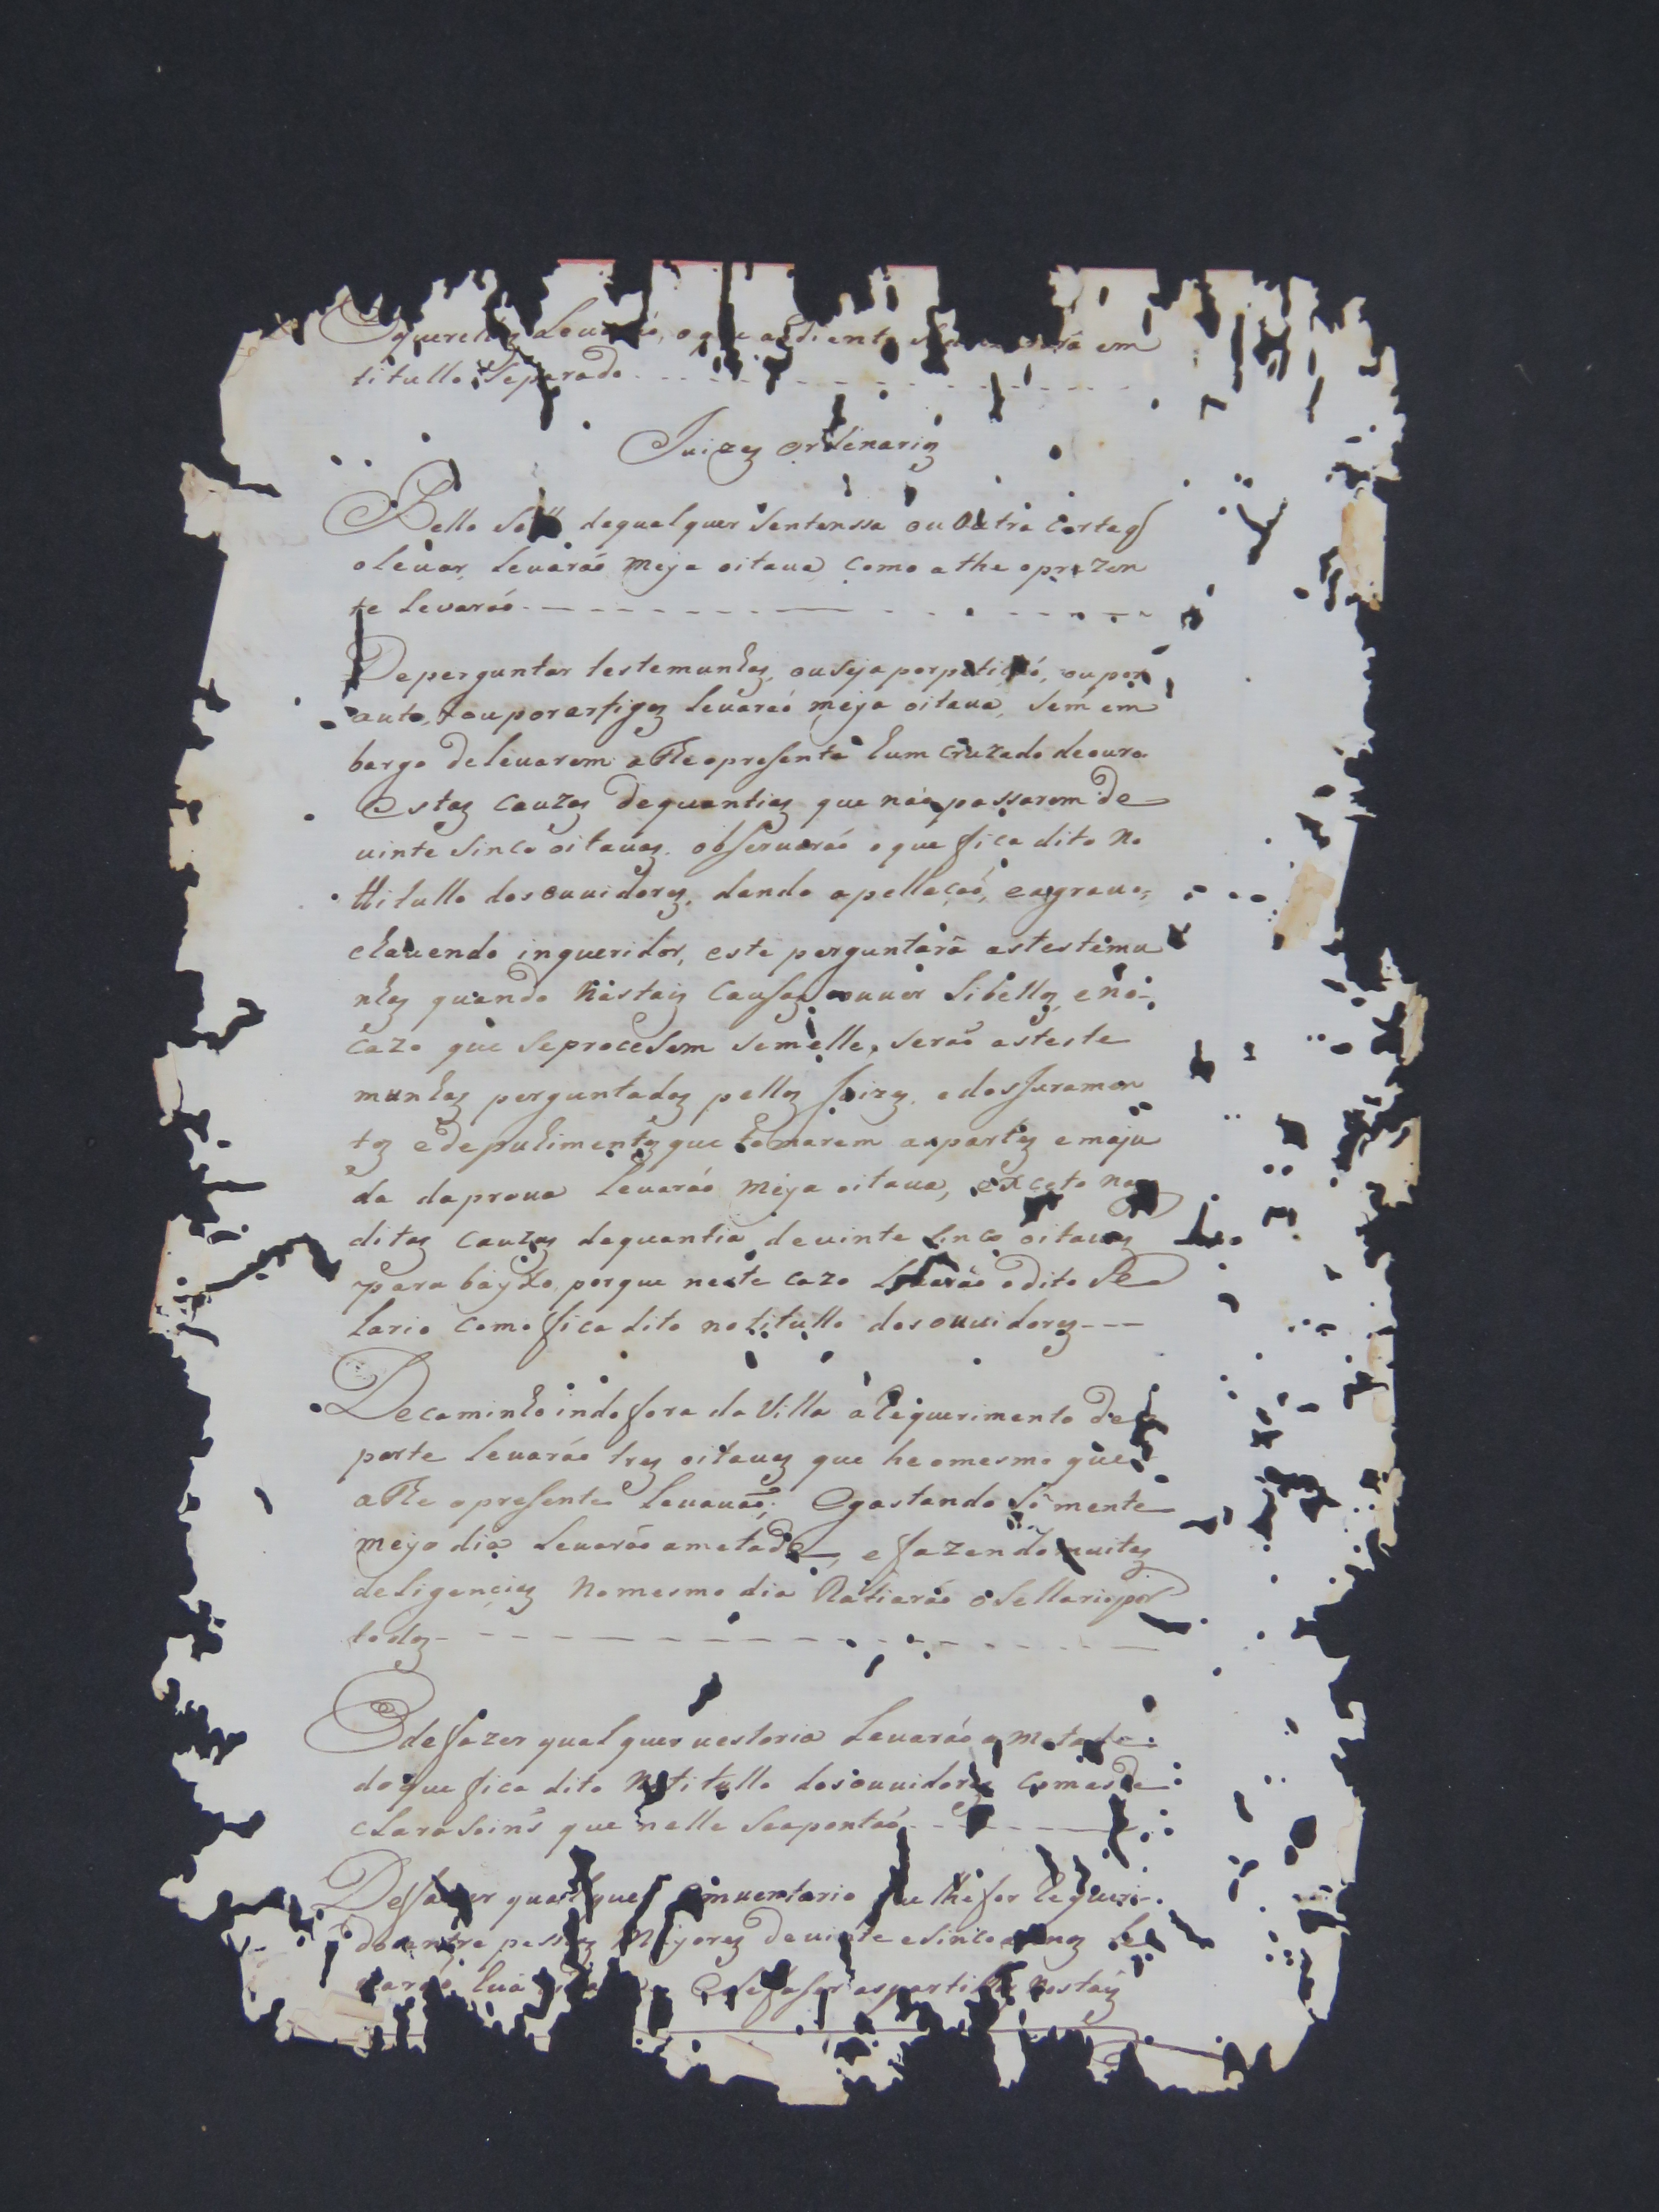 querellas Levaráó, o que addiente em
titullo Separado
Juizes ordenarios
Pello Sello dequalquer Sentenssa ou Outra Cartaq
oLeuar, Leuaráó meya oitaua, como athe oprezen
te Levaráó
Deperguntar testemunhas, ouseja porpetiçaó, oupor
auto, ou porartigos Leuaráó meya oitaua, sem em
bargo deLeuarem atheopresente hum cruzado deouro
Estas cauzas dequantias que naó passarem de
uinte sinco oitauas, observaráó oque fica dito no
titullo dosouuidores, dando apellaçaó, eagrauo,
ehauendo inqueridor, este perguntará astestemu
nhas quando nestas Causas ouuer Libellos, eno
cazo que seprocesem semelle, seráó asteste
munhas perguntadas pellos Juizes, edosJuramen
tos edepuhimentos que tomarem aspartes emaju
da daproua Leuaráó meya oitaua, exceto nas
ditas cauzas daquantia deuinte sinco oitauas
para bayxo, porque neste cazo Leuaráó odito Se
Lario como fica dito notitullo dosouuidores
Decaminho indofora da Villa aRequerimento de
parte Leuaráó tres oitauas que heomesmo que
athe opresente Leuauaó, Egastando sómente
meyo dia Leuaráó ametade, efazendo muitas
deligencias nomesmo dia Ratiaráó oSellariopor
todas
Edefazer qualquer uestoria Leuaráó ametade
doque fica dito notitullo dosouuidores comasde
claraSoins que nelle seapontaó
Defazer qualquer inuentario que lhefor Requeri
do entre pessoas Mayores deuinte esinco annos Le
uaráó hua Edefaser aspartilhas nestas